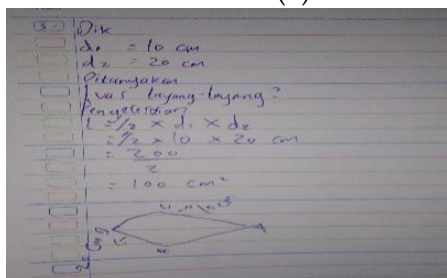 3. Dik
d₁ = 10 cm
d₂ = 20 cm
Ditanyakan
Luas layang-layang?
Pengelesaian?
L = 1/2 × d₁ × d₂
= 1/2 × 10 × 20 cm
= 200
2
= 100 cm²